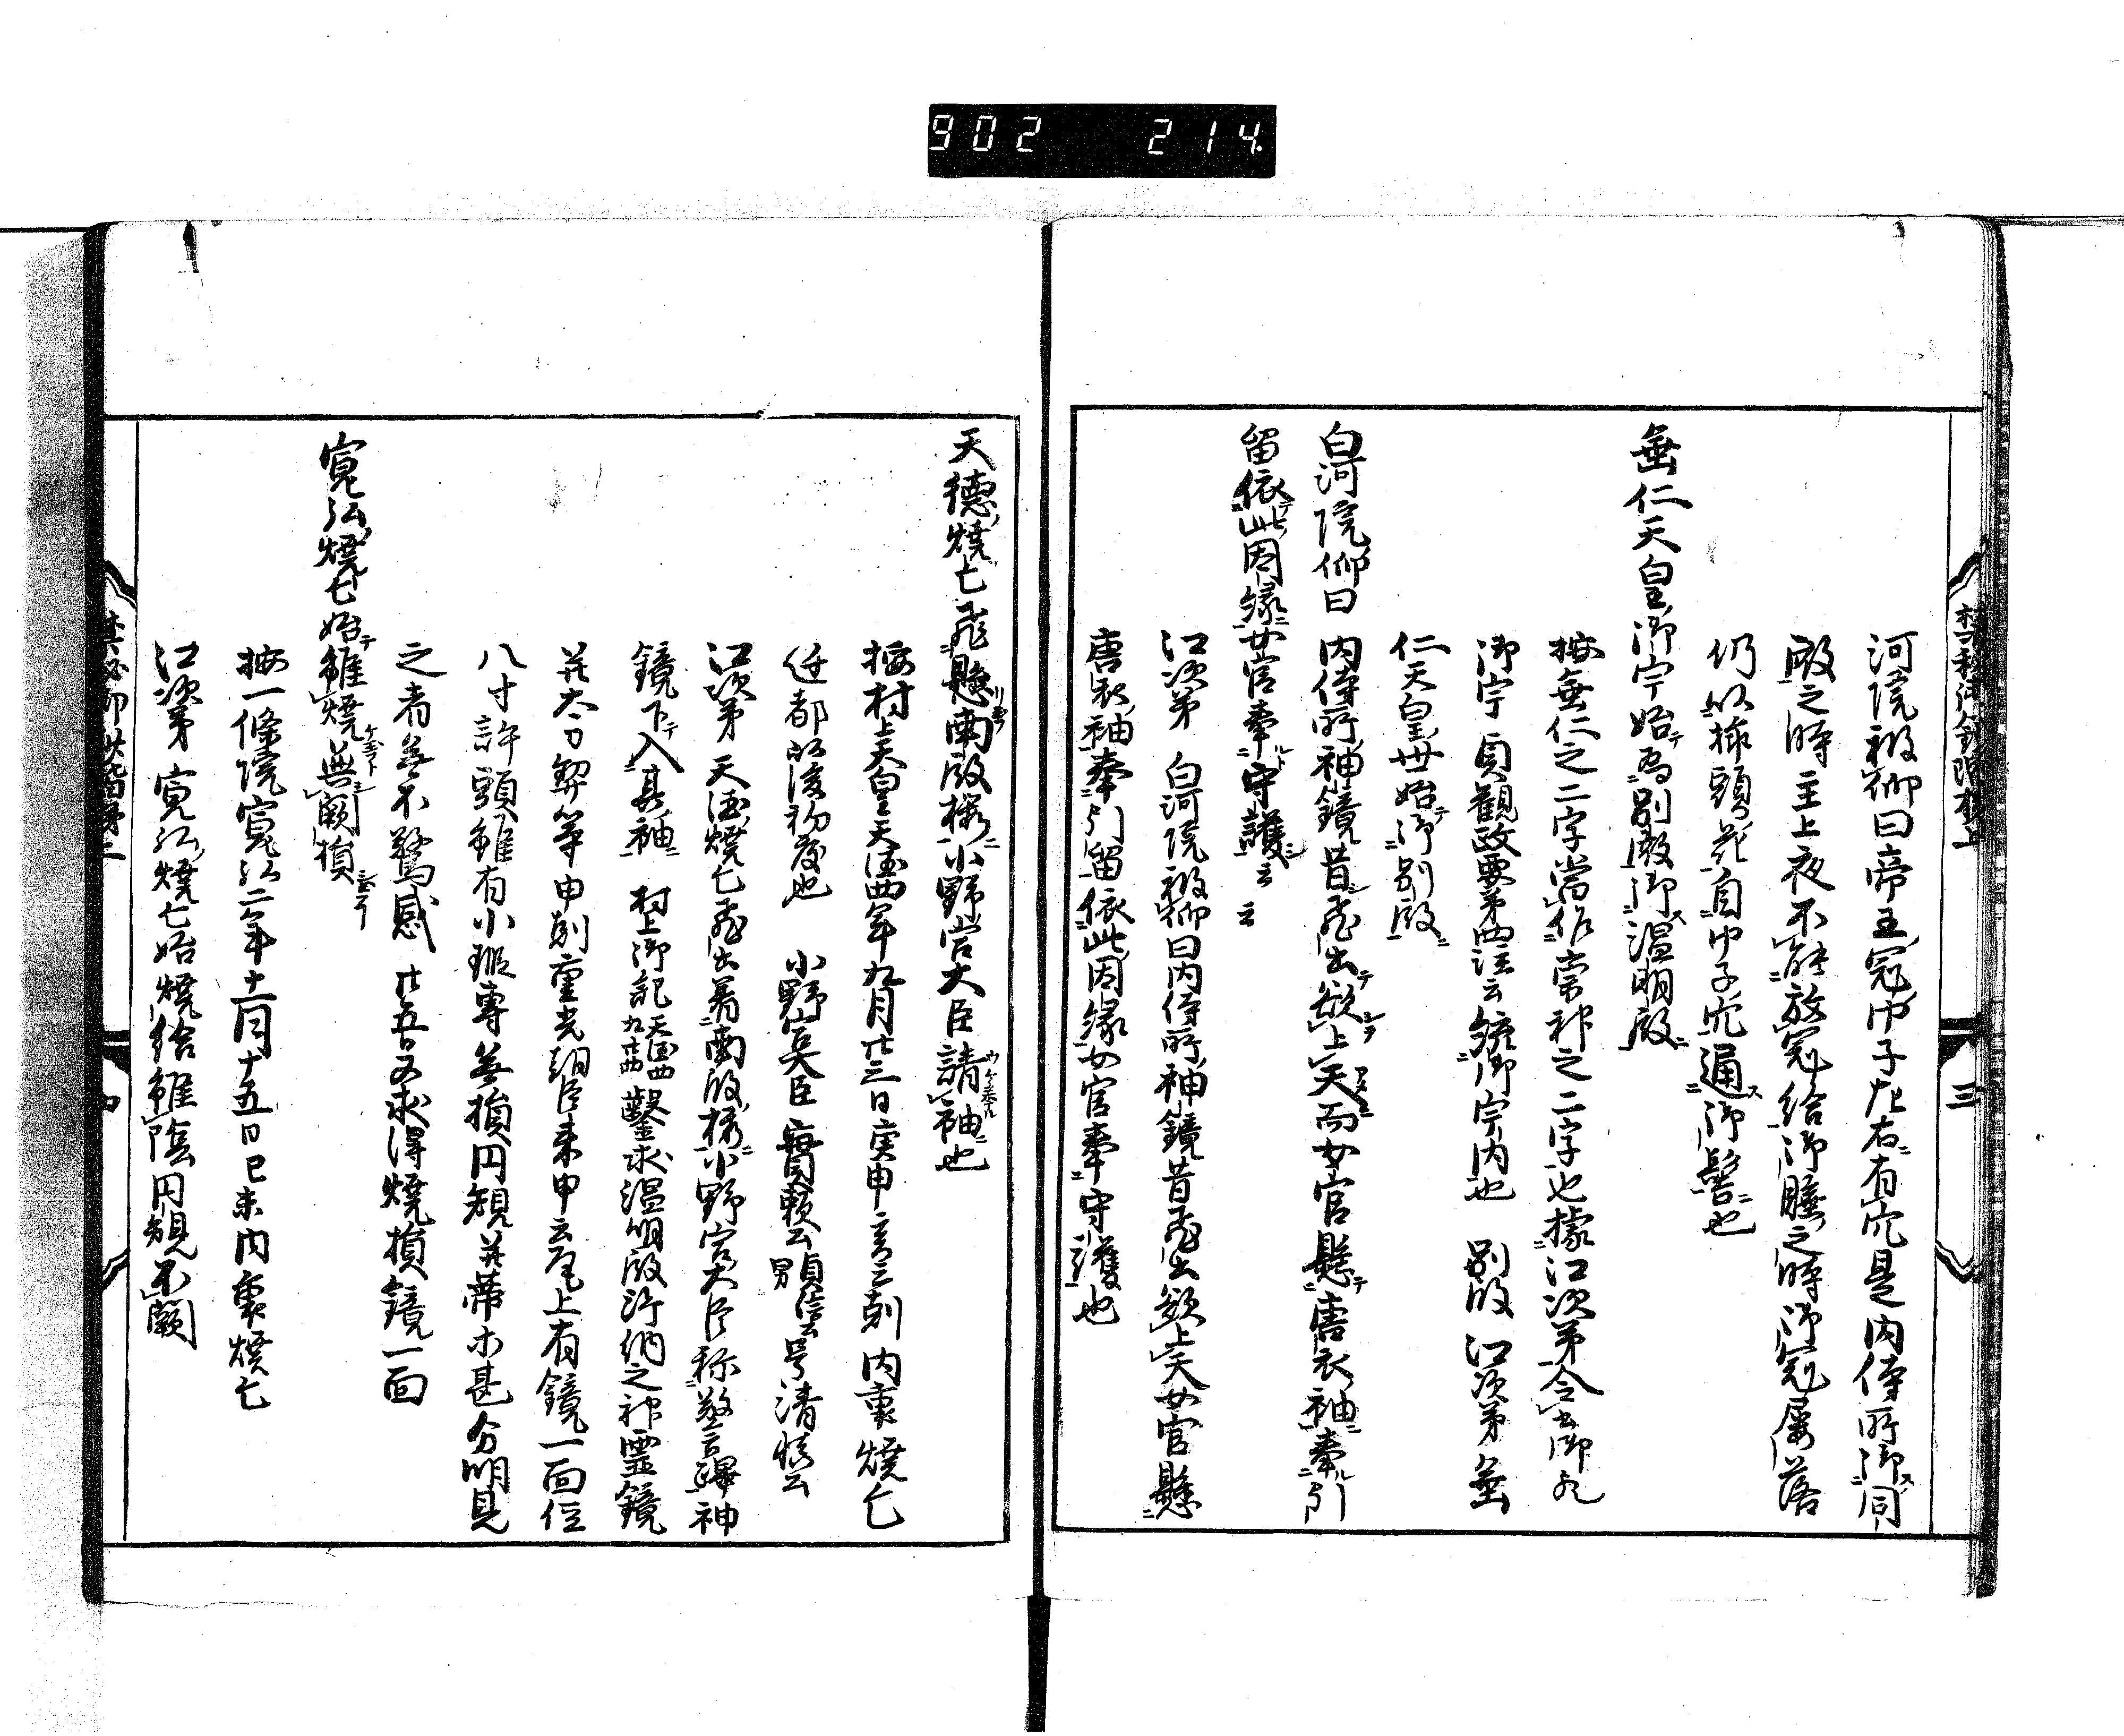 902 214.
河院被仰曰帝王冠巾子左右有穴是内侍所御同
殿之時主上夜不能放冠給御睡之時御冠屡落
仍以挿頭花自巾子穴通御髻也
垂仁天皇御宇始為別殿御温明殿
按垂仁之二字当作崇神之二字也據江次第今
御宇 貞観政要第四注云 御宇内也 別殿 江次第 垂
仁天皇世始御別殿
白河院仰曰 内侍所神鏡昔飛出欲上天而女官懸唐衣袖奉引
留依此因縁女官奉守護云云
江次第 白河院被仰曰内侍所神鏡昔飛出欲上天女官懸
唐衣袖奉引留依此因縁女官奉守護也
三
天徳焼亡飛懸南殿桜小野宮大臣請袖也
按村上天皇天徳四年九月廿三日庚申亥三剋内裏焼亡
遷都以後初度也 小野宮大臣 実頼公 貞信公男号清慎公
江次第 天徳焼亡飛出着南殿桜小野宮大臣称警蹕神
鏡下入其袖 村上御記 天徳四九廿四 鑿求温明殿所納之神霊鏡
并大刀契等申剋重光朝臣来申云瓦上有鏡一面径
八寸許頭雖有小瑕専無損円規并蔕等甚分明見
之者無不驚感 廿五日又求得焼損鏡一面
寛弘焼亡始雖焼無闕損
按一條院寛弘二年十一月十五日己未内裏焼亡
江次第 寛弘焼亡始焼給雖陰円規不闕